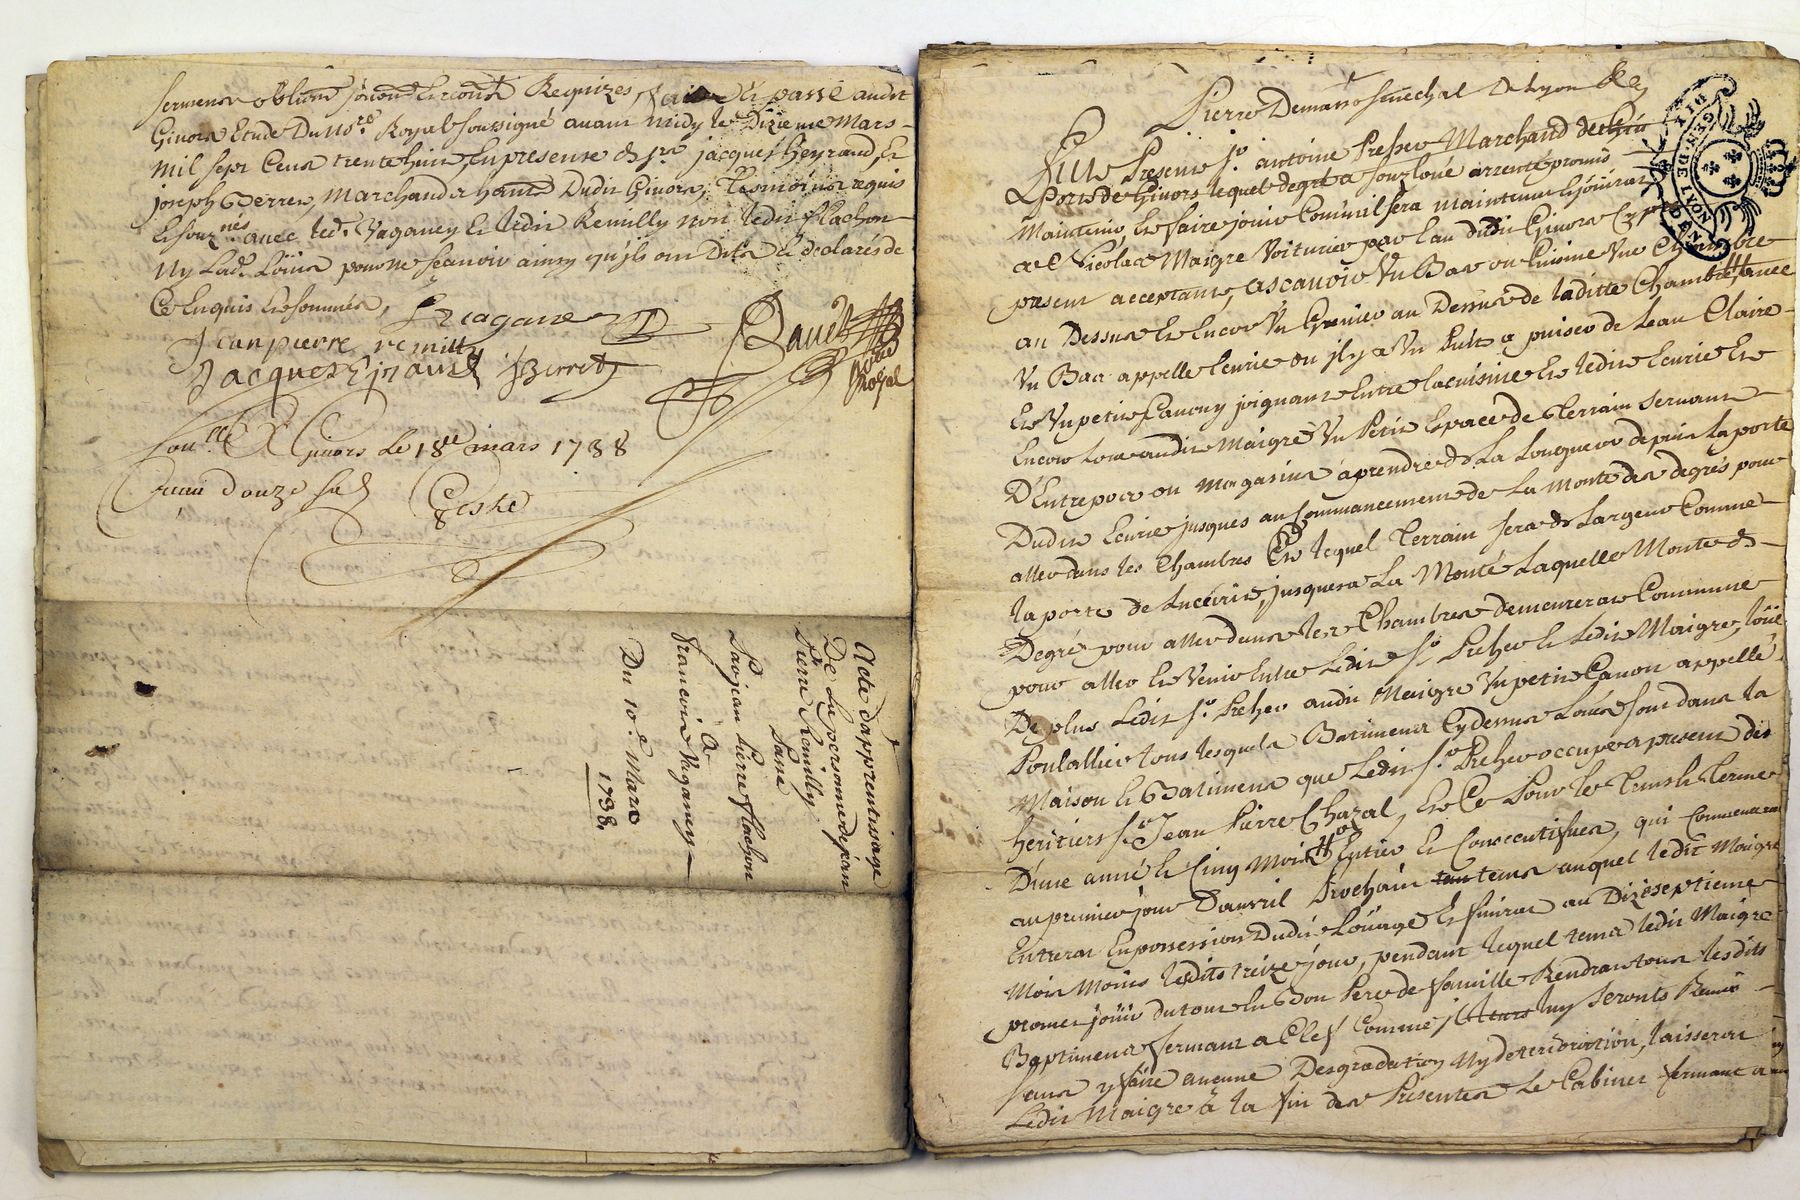 serment oblions soumon renon Requizes, fait et passé audit
Givors Etude Du no.re Royal soussigné avant midy le Dizieme Mars
mil sept Cens trente huit, En presence de s.rs jacques Heyraud, et
joseph Verret, Marchands han.ts Dudit Givors, Tesmoins requis
Et souz.nés avec led.t Vaganey et ledit Remilly non ledit flachon
Ny lad.e Loüise pour ne sçavoir ainsy qu'ils ont Dits et declarés de
Ce Enquis et sommés,
f vaganey
Jean pierre remilly
Jacques Eyraud
J Verret
notaire Royal
Con.llé A Givors Le 18.e mars 1738
reçu douze sols
Geste
Acte d'apprentissage
De La personne de jean
Pierre Remilly
Passé
Par jean Pierre flachon
A
francois Vaganey
Du 10.e Mars
1738.
Pierre Demasso senechal De Lyon &c
Fut Present s.r antoine Preher Marchand de chin
Ports de Givors lequel de gré a souzloüé arrenté promis
Maintenir Et faire jouir Comm'il sera maintenu Et joüira
a Nicolas Maigre Voiturier par Eau dudit Givors Cy
present acceptant, ascavoir Un Bas ou Cuisine Une Chambre
au Dessus Et Encor Un Grenier au Dessus de laditte Chambre,
Un Bas appellé Ecurie ou il y a Un Puits a puiser de Leau Claire
Et Un petit Caveau joignant Entre la cuisine Et ledit Ecurie Et
Encor Loue audit Maigre Un Petit Espace de Terrain servant
D'Entrepos ou magasins a prendre de La Longueur depuis La porte
Dudit Ecurie jusques au Commancement de La Monté des degrés pour
aller dans les Chambres Et lequel Terrain sera de Largeur Comme
la porte de Lucurie, jusques a La Monté Laquelle Monte de
Degré pour aller dans les Chambres demeurera Commune
pour aller Et Venir Entre Ledit s.r Preher Et Ledit Maigre, loüe
De plus Ledit s.r Preher audit Maigre Un petit Canon appellé
Poulallier tous lesquels Batiments Cy dessus Loués sont dans la
Maison Et Batiment que Ledit s.r Preher occupe a present des
heritiers s.r Jean Pierre Chazal, Et Ce Pour le Tems Et Terme
D'une anné Et Cinq Mois Entier Et Consecutifues, qui Commencera
au premier jour D'auvril Prochain tems auquel ledit Maigre
Entrera En possession Dudit Loüage Et finira au Dizeseptieme
Mois Moins lesdits treize jour, pendant lequel tems ledit Maigre
promet joüir du tout En Bon Pere de famille Rendra tous lesdits
Baptiments fermant a Clef Comme ils luy seronts Remis
sans y faire aucune Desgradation Ny deterioration, laissera
Ledit Maigre à la fin des Presentes Le Cabinet fermant a
GEN·DE LYON